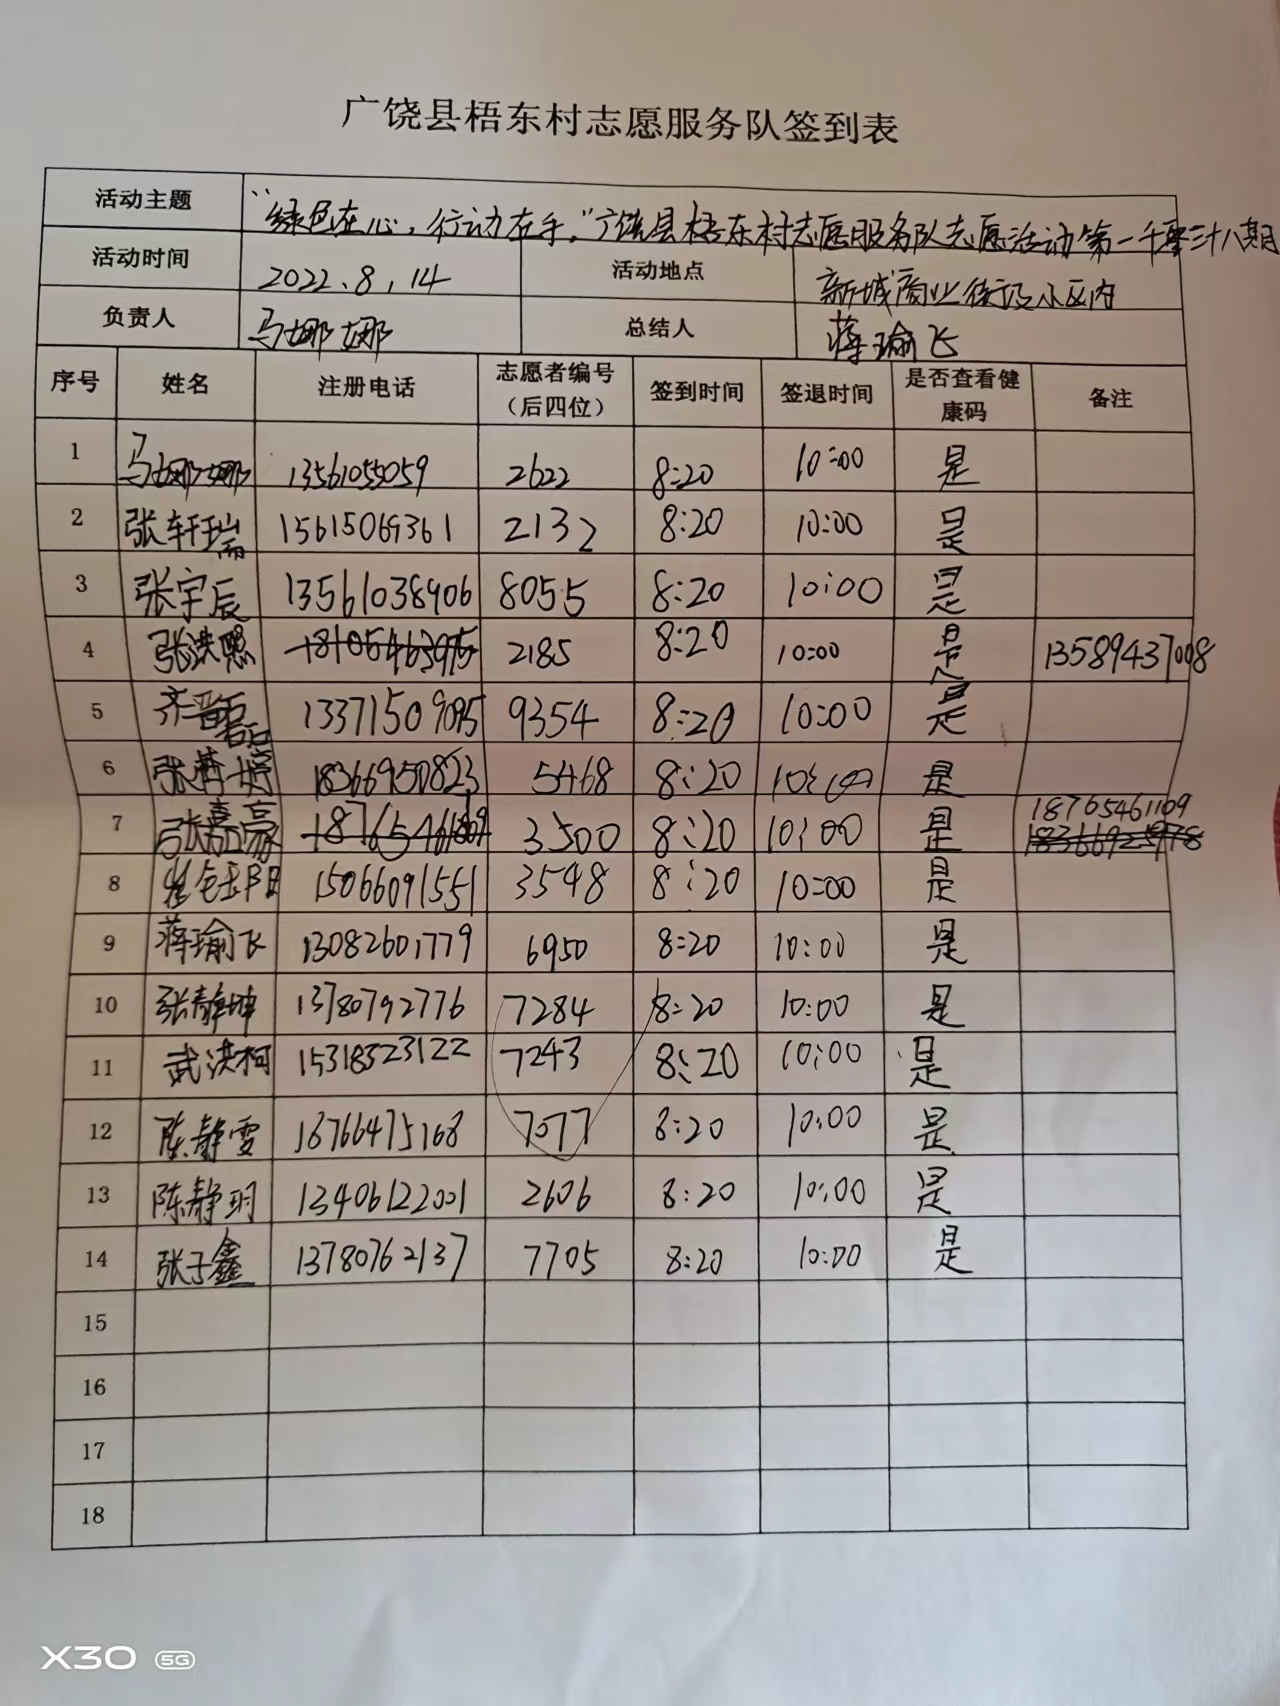 广饶县梧东村志愿服务队签到表
活动主题 “绿色在心，行动在手。”广饶县梧东村志愿服务队志愿活动第一千零三十八期
活动时间 2022.8.14 活动地点 新城商业街及小区内
负责人 马娜娜 总结人 蒋瑜飞
序号 姓名 注册电话 志愿者编号（后四位） 签到时间 签退时间 是否查看健康码 备注
1 马娜娜 13561055059 2622 8:20 10:00 是
2 张轩瑞 15615069361 2132 8:20 10:00 是
3 张宇辰 13561038906 8055 8:20 10:00 是
4 张洪熙 2185 8:20 10:00 是 13589437008
5 齐 13371509095 9354 8:20 10:00 是
6 张 婷 18366950823 5468 8:20 10:00 是
7 张嘉豪 3500 8:20 10:00 是 18765461109
8 阳 15066091551 3548 8:20 10:00 是
9 蒋瑜飞 13082601779 6950 8:20 10:00 是
10 张静坤 13780792776 7284 8:20 10:00 是
11 武洪柯 15318323122 7243 8:20 10:00 是
12 陈静雯 18766475168 7077 8:20 10:00 是
13 陈静玥 13406122001 2606 8:20 10:00 是
14 张子鑫 13780762137 7705 8:20 10:00 是
15
16
17
18
X30 5G